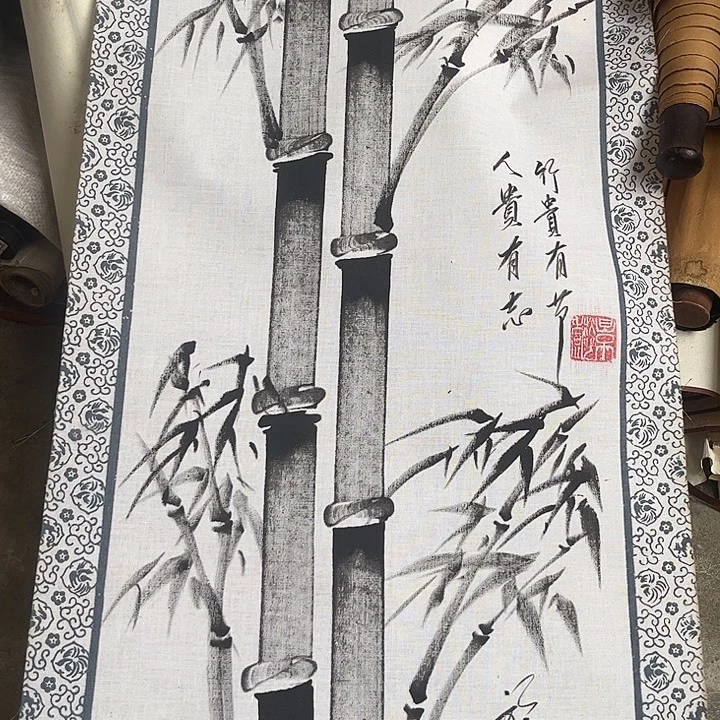 竹貴有节
人貴有志